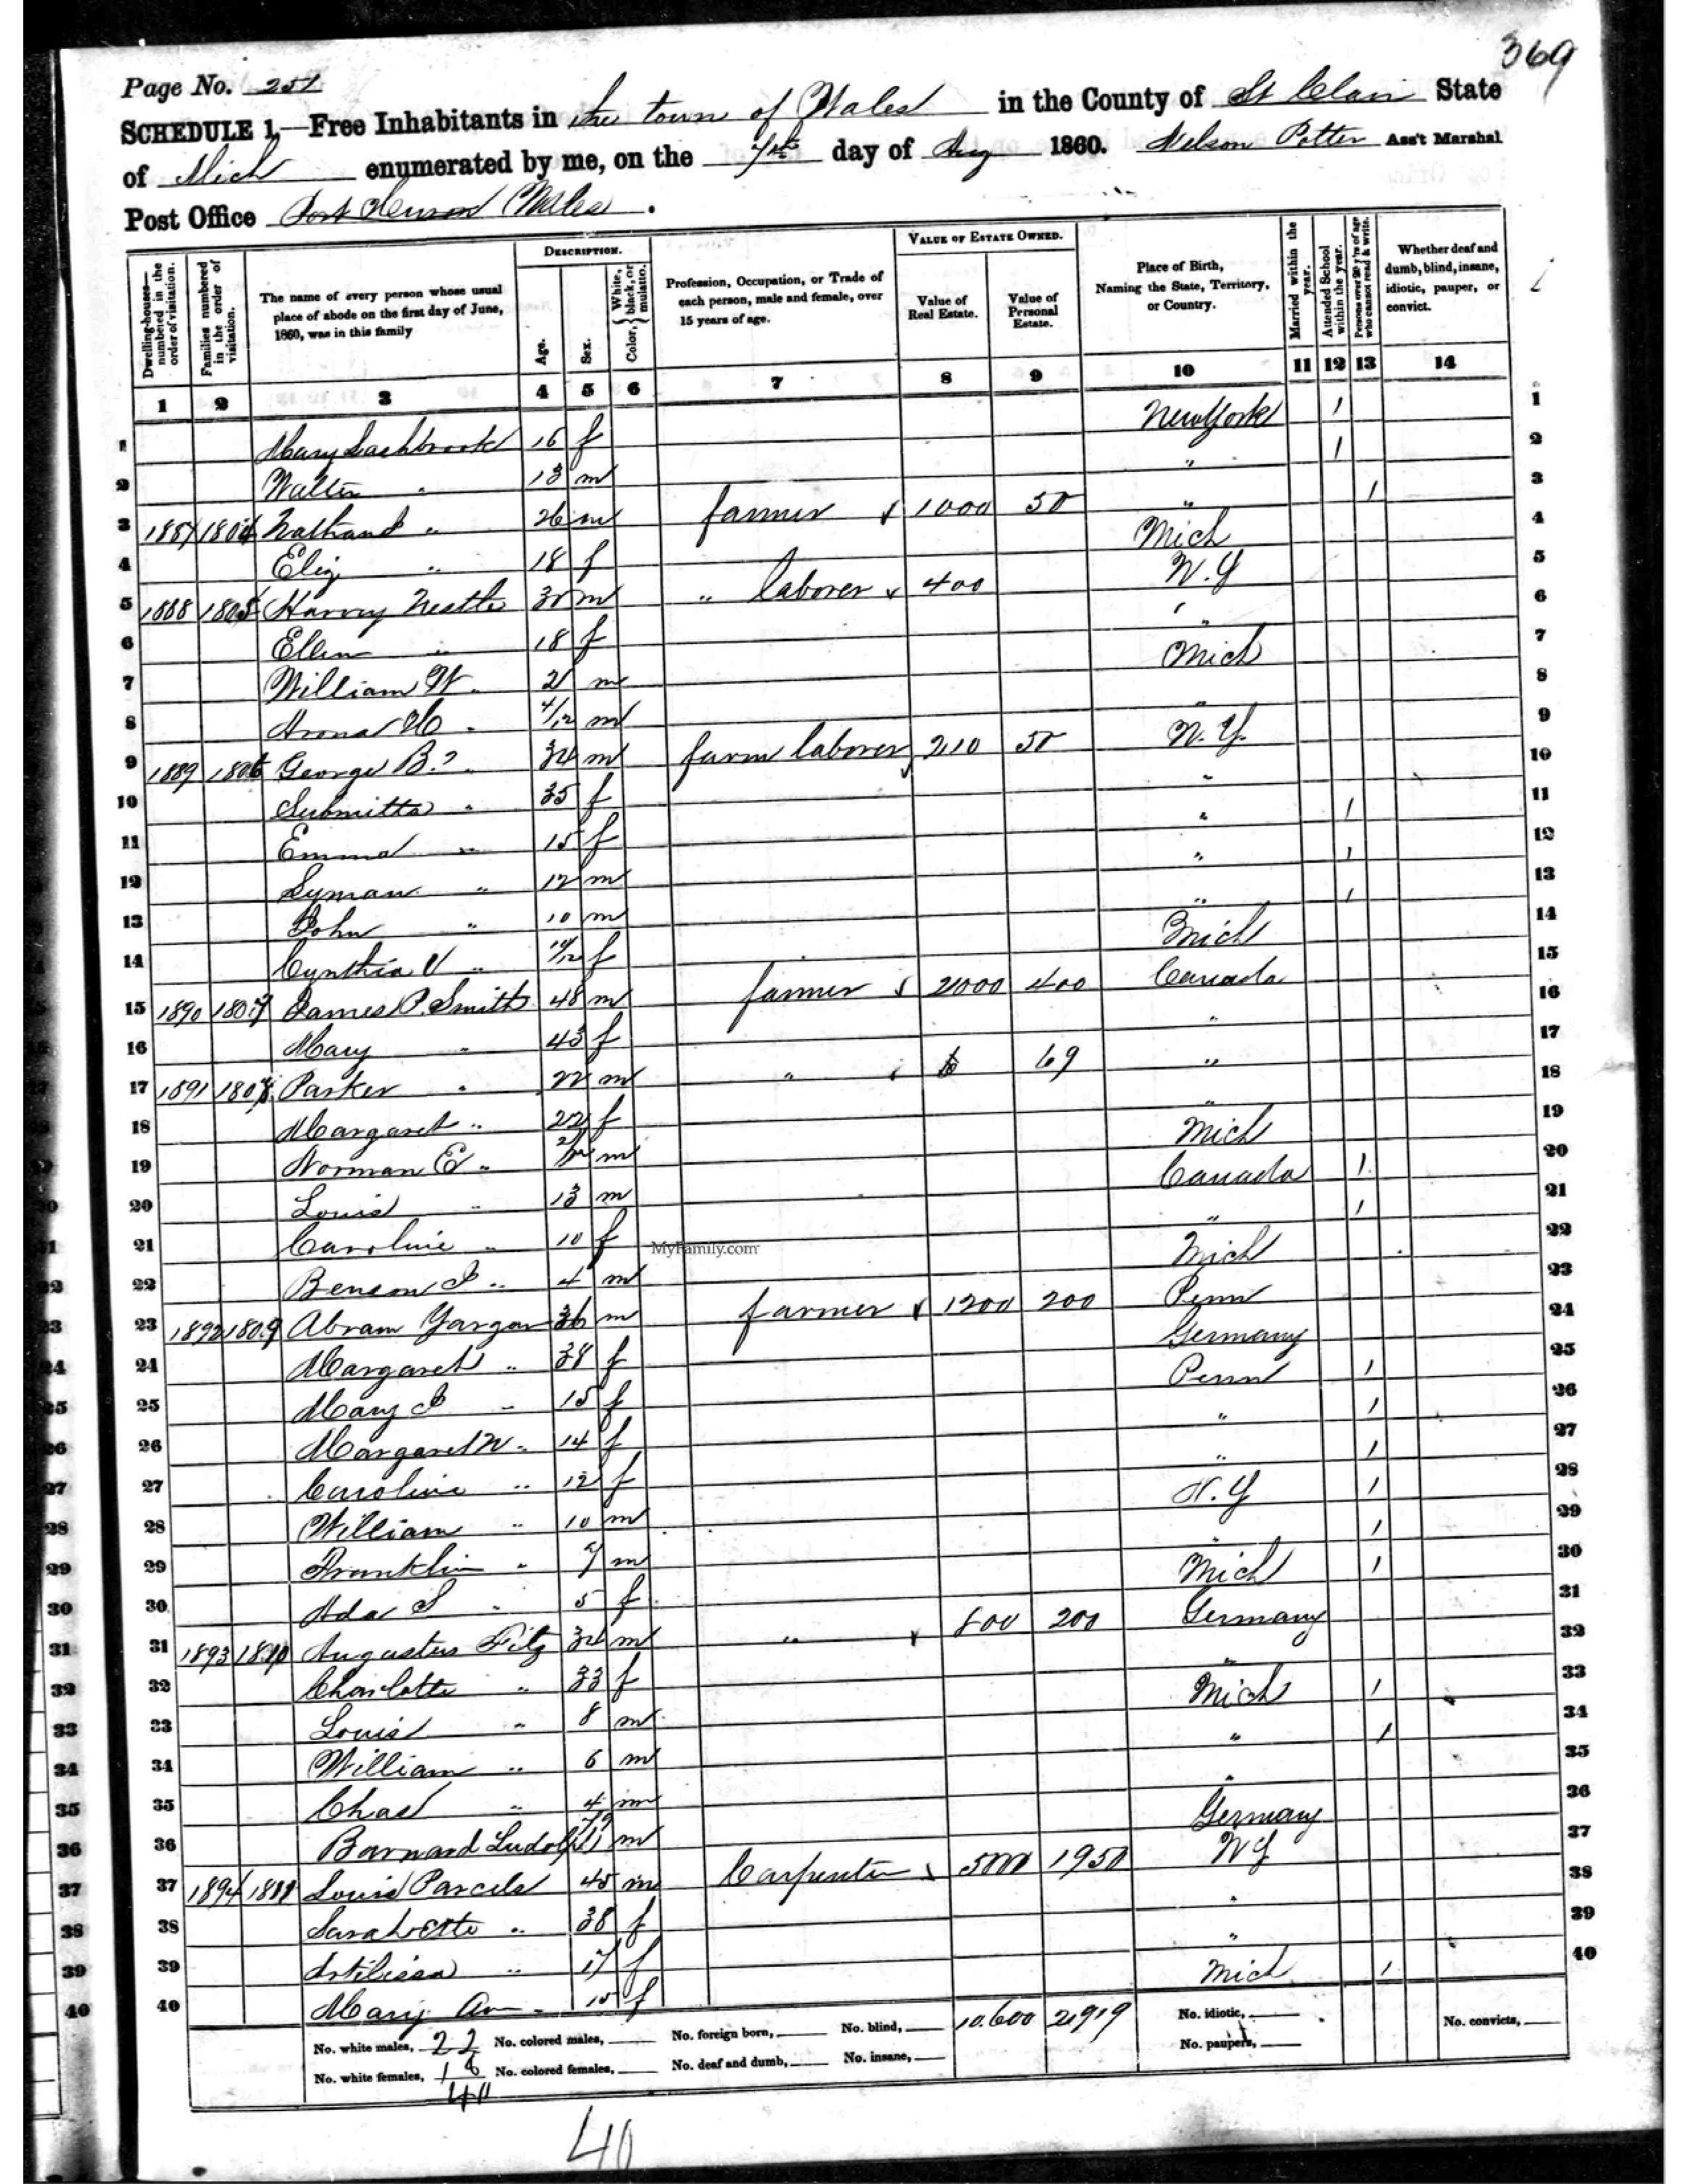 369
Page No. 251
SCHEDULE 1,—Free Inhabitants in the town of Wales in the County of St Clair State
of Mich enumerated by me, on the 7th day of Aug 1860. Nelson Potter Ass't Marshal
Post Office Port Huron Wales.
Dwelling-houses—numbered in the order of visitation. Families numbered in the order of visitation. The name of every person whose usual place of abode on the first day of June, 1860, was in this family DESCRIPTION. Age. Sex. Color, { White, black, or mulatto. Profession, Occupation, or Trade of each person, male and female, over 15 years of age. VALUE OF ESTATE OWNED. Value of Real Estate. Value of Personal Estate. Place of Birth, Naming the State, Territory, or Country. Married within the year. Attended School within the year. Persons over 20 y'rs of age who cannot read & write. Whether deaf and dumb, blind, insane, idiotic, pauper, or convict.
1 2 3 4 5 6 7 8 9 10 11 12 13 14
1 Mary 16 f New York 1 1
2 Walter " 13 m " 1 2
3 1887 1804 " 26 m farmer 1000 50 " 1 3
4 Eliz " 18 f Mich 4
5 1888 1805 Harvey 30 m " laborer 400 N.Y 5
6 Ellen " 18 f " 6
7 William W. " 2 m Mich 7
8 " 4/12 m " 8
9 1889 1806 George B.? " 34 m farm laborer 210 50 N.Y. 9
10 Submitta " 35 f " 10
11 Emma " 15 f " 1 11
12 Lyman " 12 m " 1 12
13 John " 10 m " 1 13
14 Cynthia V " f Mich 14
15 1890 1807 James P. Smith 48 m farmer 2000 400 Canada 15
16 Mary " 43 f " 16
17 1891 1808 Parker " 22 m " 69 " 17
18 Margaret " 22 f " 18
19 Norman E " m Mich 19
20 Louis " 13 m Canada 1 20
21 Caroline " 10 f " 1 21
MyFamily.com
22 Benson I " 4 m Mich 22
23 1892 1809 Abram Yargar 36 m farmer 1200 200 Penn 23
24 Margaret " 38 f Germany 24
25 Mary I " 15 f Penn 1 25
26 Margaret W " 14 f " 1 26
27 Caroline " 12 f " 1 27
28 William " 10 m N.Y 1 28
29 Franklin " 7 m " 1 29
30 Ada S " 5 f Mich 1 30
31 1893 1810 Augustus Fitz 34 m " 800 200 Germany 31
32 Charlotte " 33 f " 32
33 Louis " 8 m Mich 1 33
34 William " 6 m " 1 34
35 Chas " 4 m " 35
36 Barnard Ludolph m Germany 36
37 1894 1811 Louis Parcels 45 m Carpenter 5000 1950 NY 37
38 " 38 f " 38
39 " 17 f " 39
40 Mary Ann " 15 f Mich 1 40
No. white males, 22 No. colored males, No. foreign born, No. blind, 10.600 2919 No. idiotic,
No. white females, 18 No. colored females, No. deaf and dumb, No. insane, No. paupers, No. convicts,
40
40